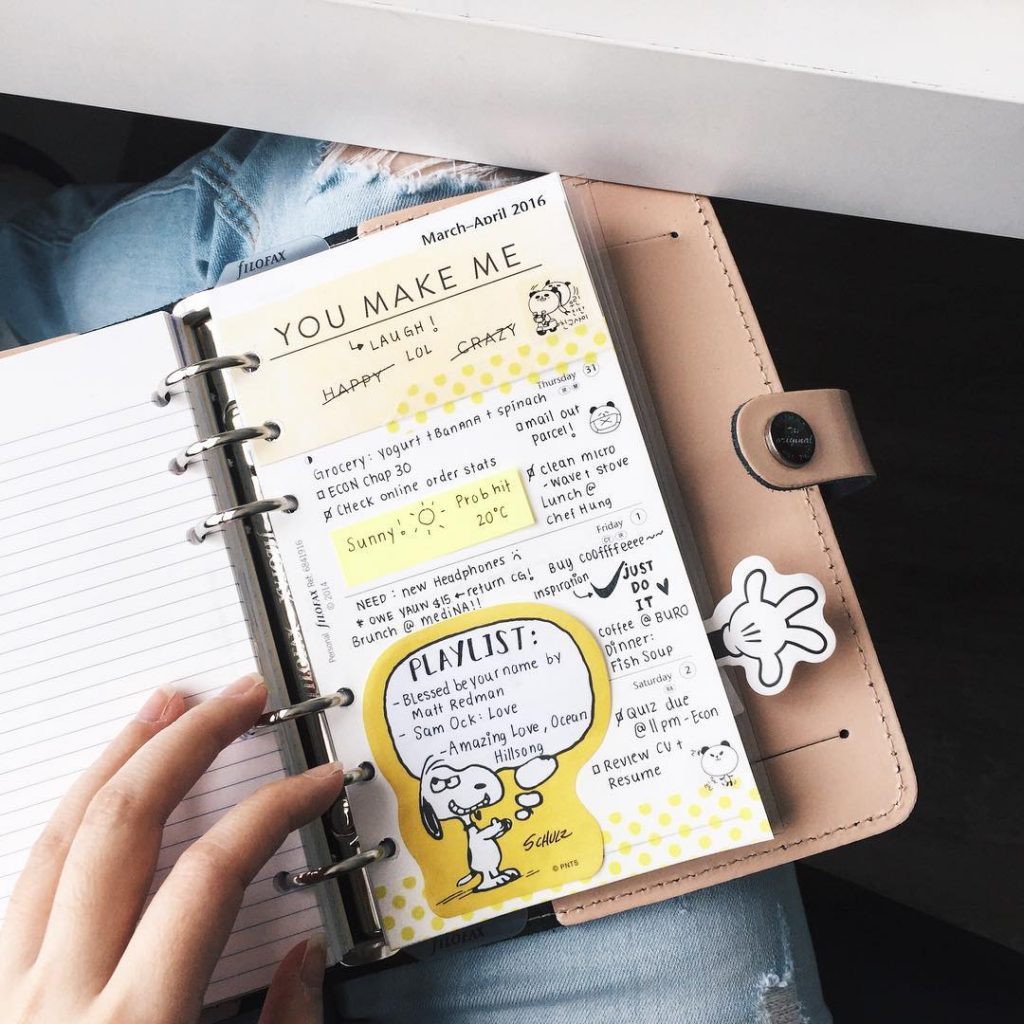 FILOFAX
March–April 2016
YOU MAKE ME
↳ LAUGH!
HAPPY LOL CRAZY
Thursday 31
Grocery: yogurt + BanAnA + spinach
□ ECON Chap 30
CHeck online order stats
□ mail out
parcel!
Clean micro
- wave + stove
Lunch @
Chef Hung
Sunny! Prob hit
20°C
Friday 1
NEED: new Headphones
* OWE YAUN $15 ← return CG!
Brunch @ mediNA!!
Buy cooffffeeee~~
inspiration
JUST
DO
IT
coffee @ BURO
Dinner:
Fish Soup
PLAYLIST:
- Blessed be your name by
Matt Redman
- Sam Ock: Love
- Amazing Love, Ocean
Hillsong
SCHULZ
© PNTS
Saturday 2
Quiz due
@ 11 pm - Econ
□ Review CV +
Resume
Personal FILOFAX Ref. 6841916
© 2014
The
original
FILOFAX